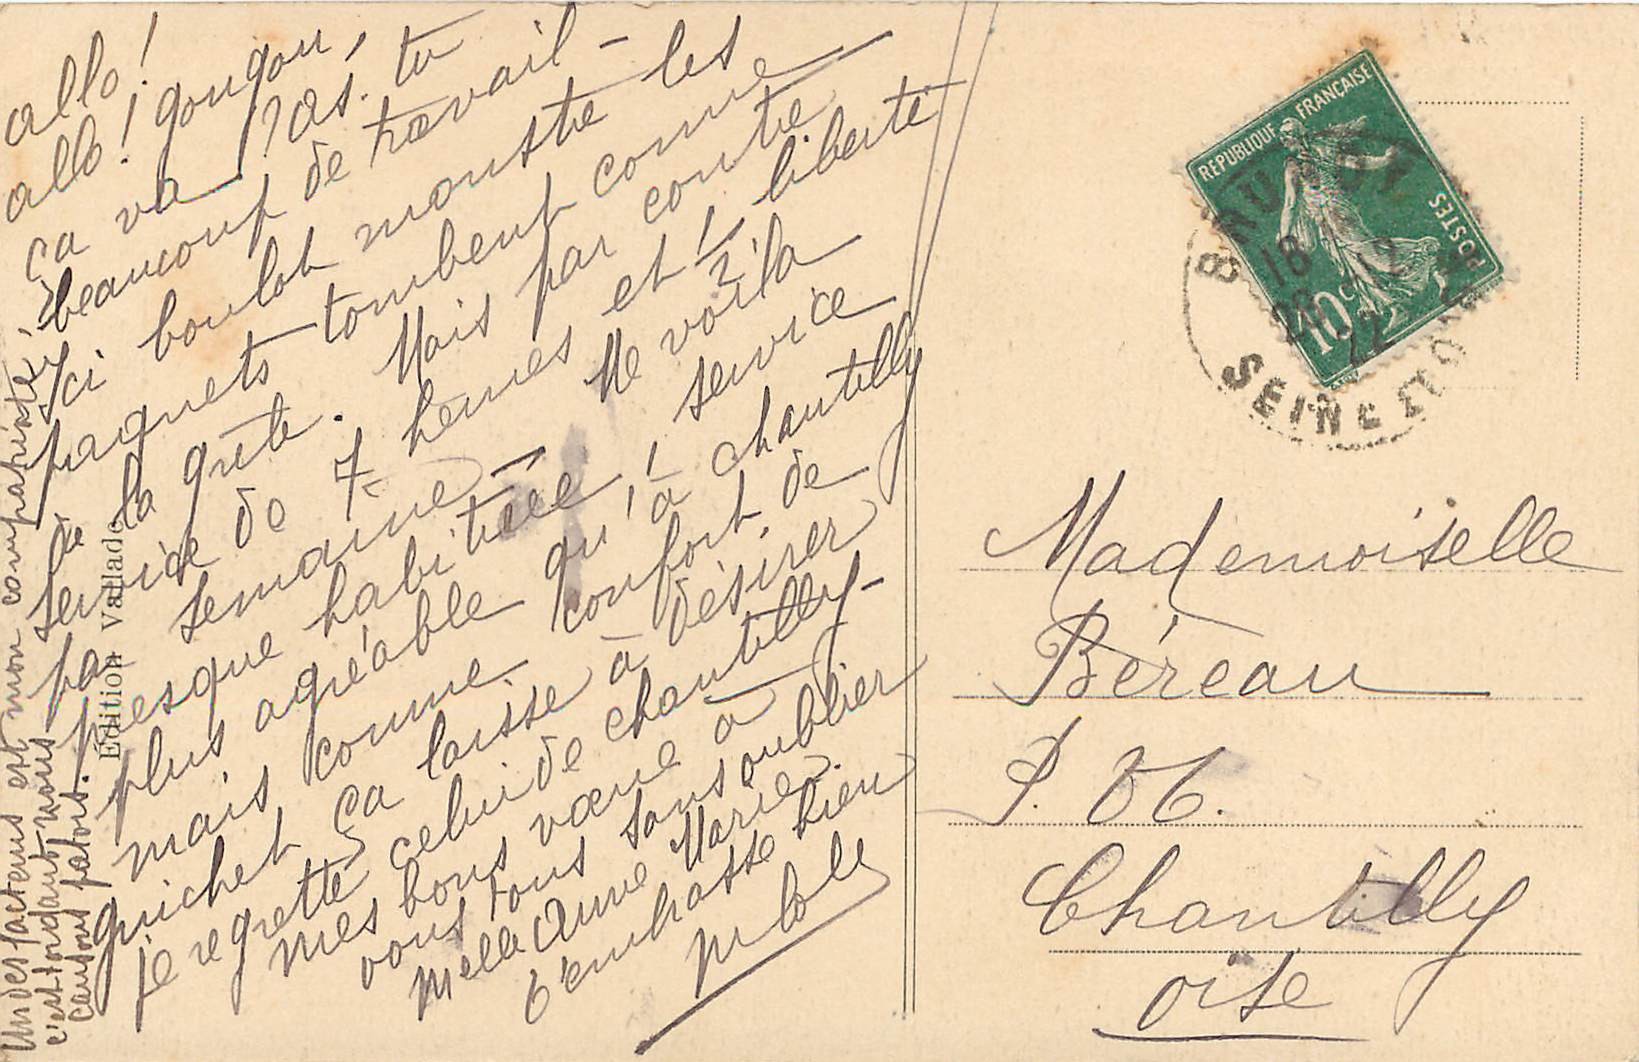 allo!
allo! gougou,
ça va ? as-tu
beaucoup de travail -
Ici boulot monstre les
paquets tombent comme
de la grêle. Mais par contre
service de 7 heures et 1/2 liberté
par semaine - Me voilà
presque habituée, service
plus agréable qu'à chantilly
mais comme confort, de
guichet ça laisse à désirer
je regrette celui de chantilly -
mes bons vœux à
vous tous sans oublier
Melle Anne Marie.
t'embrasse bien
Un des facteurs est mon compatriote,
c'est tordant nous
causons patois.
Édition Vallade
REPUBLIQUE FRANÇAISE
POSTES
10c
18
28 - 12
22
SEINE ET OISE
Mademoiselle
Béreau
P. TT.
Chantilly
oise